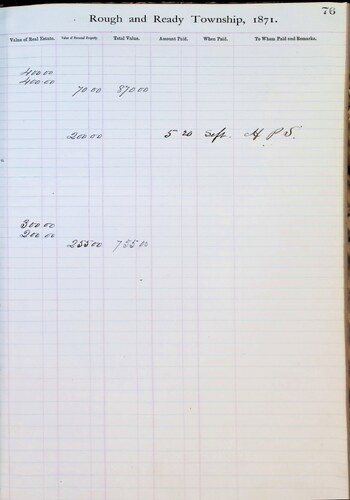 76
Rough and Ready Township, 1871.
Value of Real Estate. Value of Personal Property. Total Value. Amount Paid. When Paid. To Whom Paid and Remarks.
400 00
400 00
70 00 870 00
200 00 5 20 Sept. H P S.
300 00
200 00
255 00 755 00